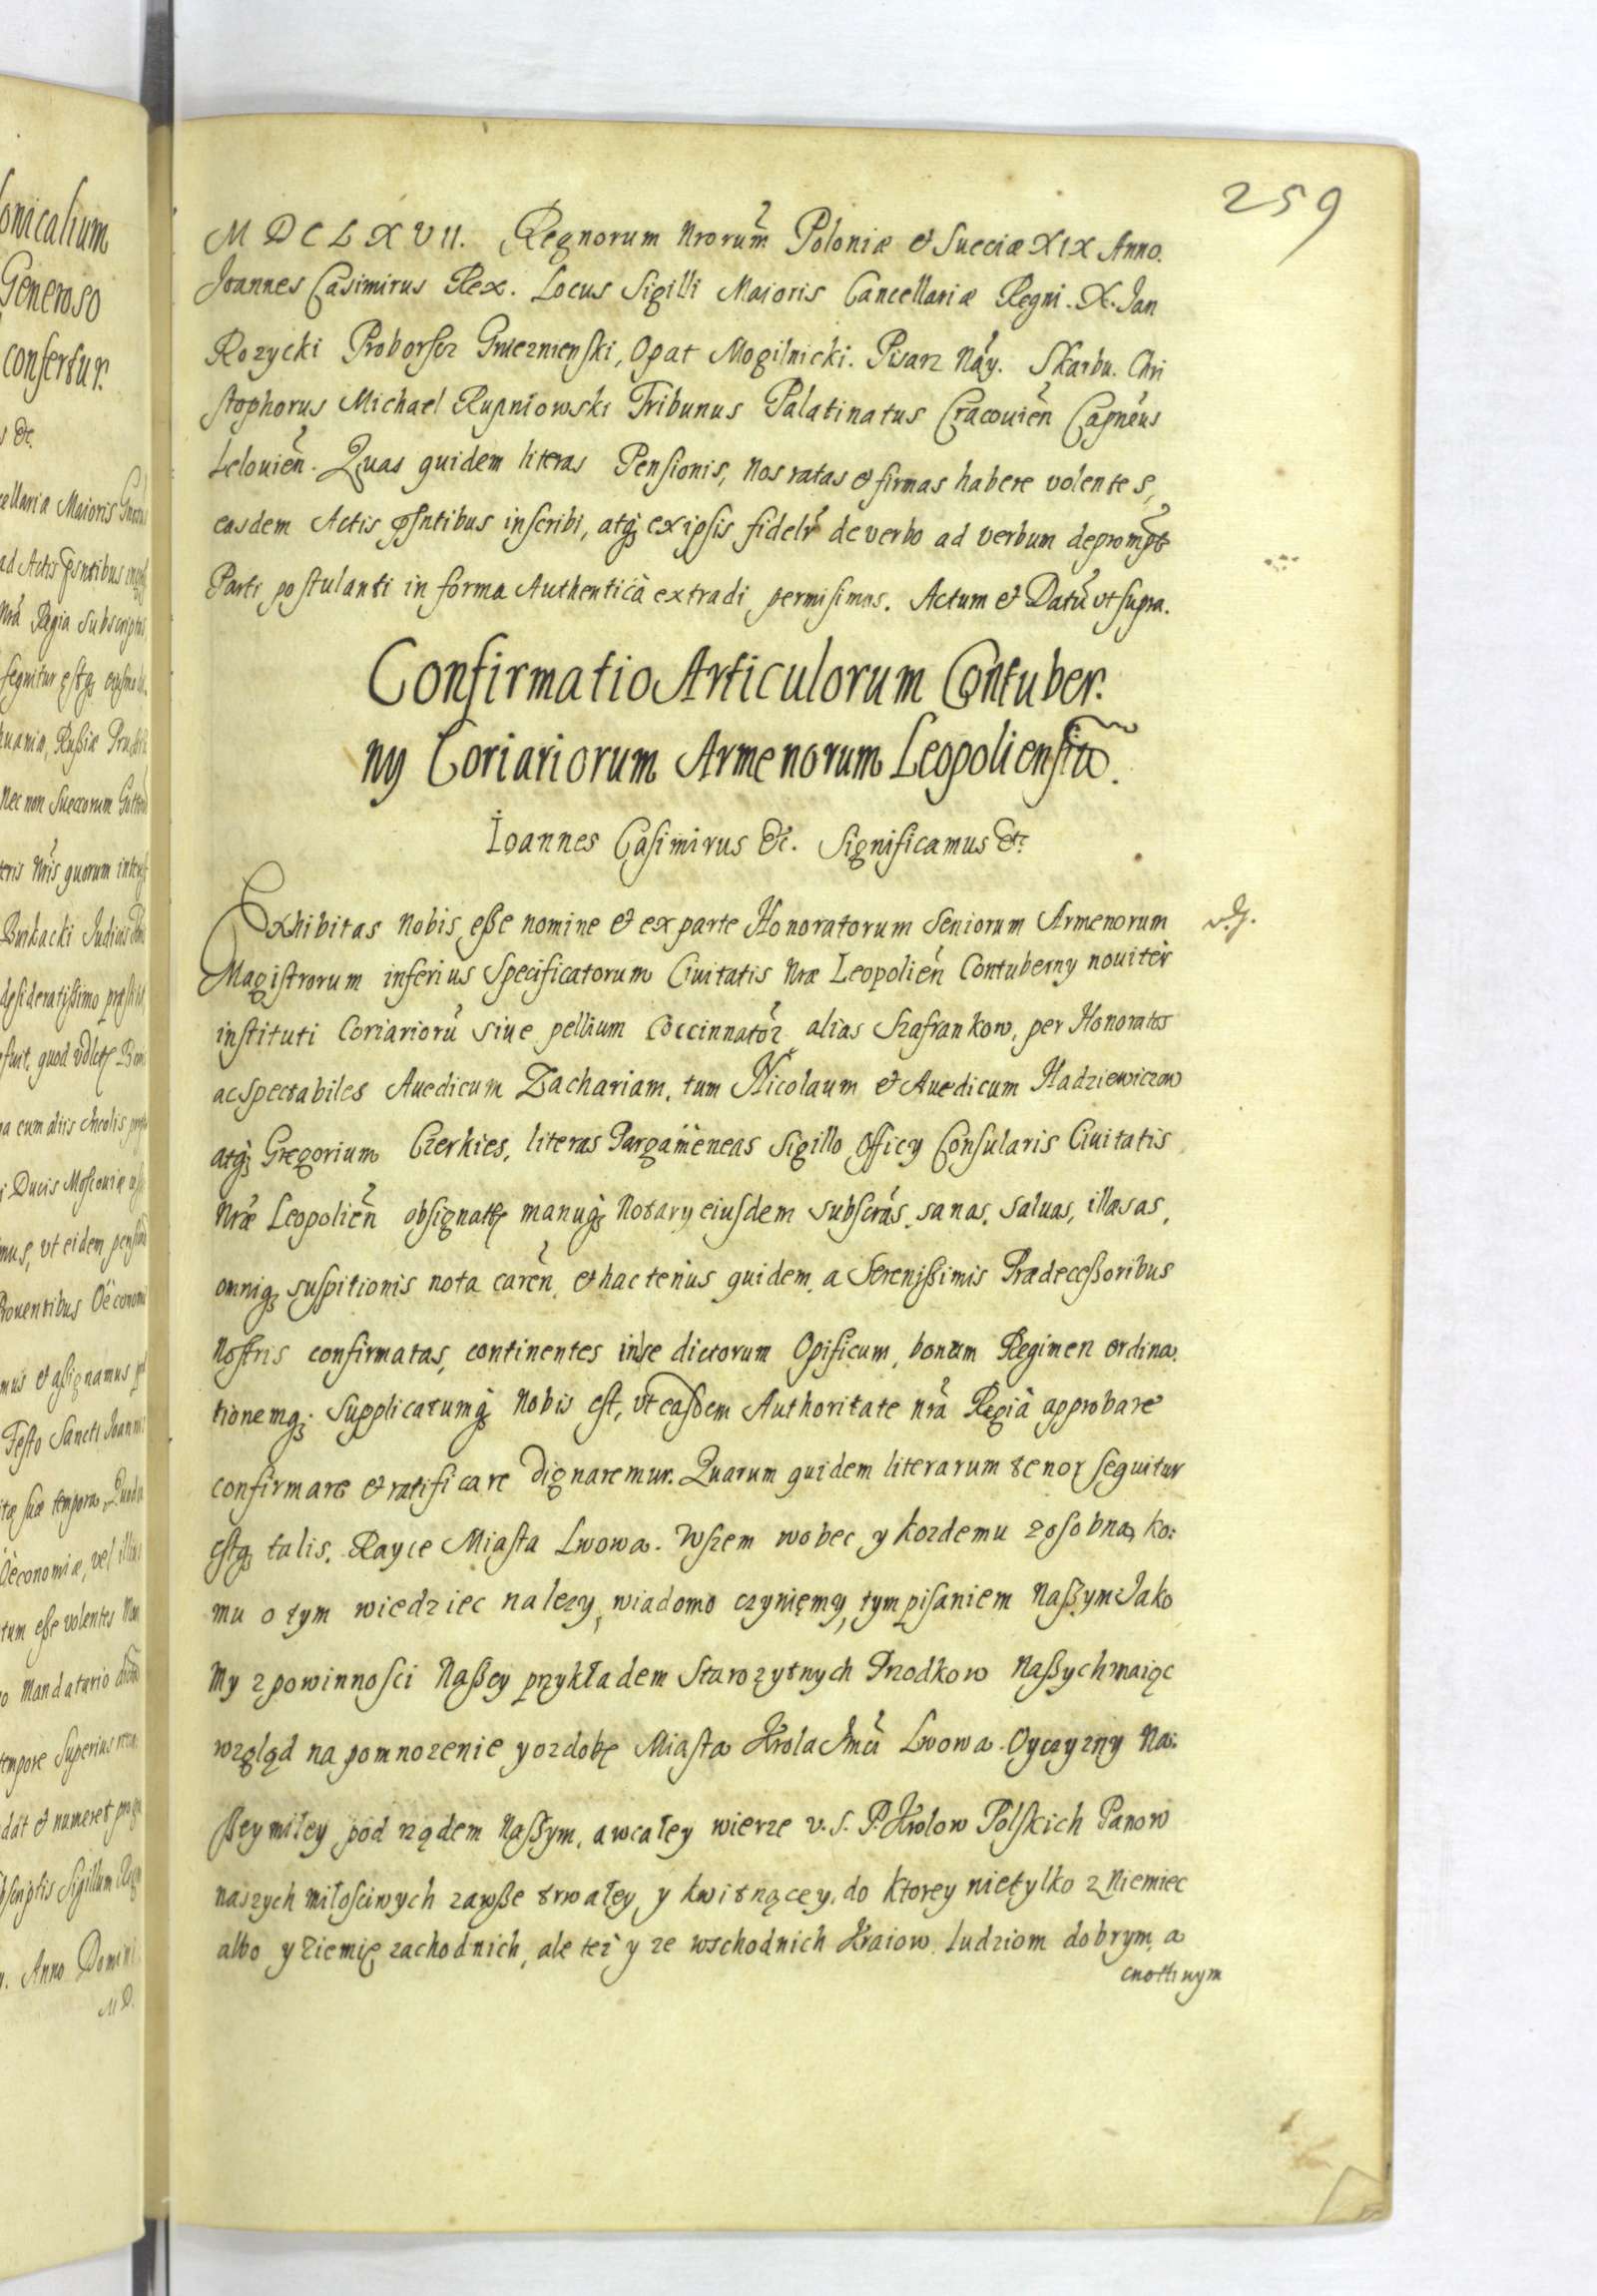 259
M D C L X V II. Regnorum Nrorum Poloniæ et Sueciæ XIX Anno.
Joannes Casimirus Rex. Locus Sigilli Maioris Cancellariæ Regni. X. Jan
Rozycki Proboszcz Gnieznienski, Opat Mogilnicki. Pisarz Nay. Skarbu. Chri
stophorus Michael Rupniowski Tribunus Palatinatus Cracouien Capneus
Lelouien. Quas quidem literas Pensionis, Nos ratas et firmas habere volentes,
easdem Actis pnntibus inscribi, atq ex ipsis fidelr de verbo ad verbum deprompt
Parti postulanti in forma Authentica extradi permisimus. Actum et Datu vt supra.
Confirmatio Articulorum Contuber.
ny Coriariorum Armenorum Leopoliensiu.
Ioannes Casimirus etc. Significamus etc
Exhibitas Nobis eße nomine et ex parte Honoratorum Seniorum Armenorum
Magistrorum inferius Specificatorum Ciuitatis Nræ Leopolien Contuberny nouiter
instituti Coriarioru siue pellium Coccinnator alias Szafrankow, per Honoratos
ac spectabiles Auedicum Zachariam, tum Nicolaum et Auedicum Hadziewiczow
atq Gregorium Czerkies, literas Pargameneas Sigillo Officy Consularis Ciuitatis
Nræ Leopolien obsignatas manuq Notary eiusdem subscras, sanas, saluas, illæsas,
omniq suspitionis nota caren, et hactenus quidem a Serenißimis Prædeceßoribus
Nostris confirmatas, continentes in se dictorum Opificum, bonum Regimen ordina
tionemq. Supplicatumq Nobis est, vt easdem Authoritate nra Regia approbare
confirmare et ratificare dignaremur. Quarum quidem literarum tenor sequitur
estq talis. Rayce Miasta Lwowa. Wszem wobec y kozdemu zosobna, ko:
mu o tym wiedziec nalezy, wiadomo czyniemy, tym pisaniem Naßym Jako
My z powinnosci Naßey przykładem Starozytnych Przodkow Naßych maiąc
wzgląd na pomnozenie y ozdobę Miasta Krola Jmci Lwowa. Oyczyzny Na:
ßey miłey pod rządem Naßym, a wcałey wierze v. S. P. Krolow Polskich Panow
naszych miłosciwych zawße trwałey y kwitnącey, do ktorey nietylko z Niemiec
albo y Ziemię zachodnich, ale też y ze wschodnich Kraiow ludziom dobrym, a
cnotliwym